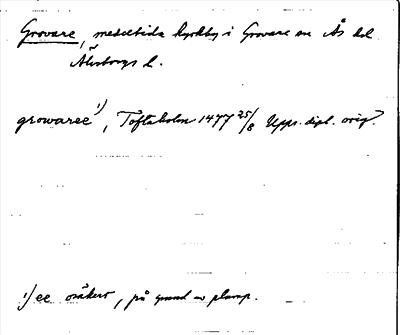 Grovare, medeltida kyrkby i Grovare sn Ås hd
Älvsborgs l.
growaree 1), Toftaholm 1477 25/8 Upps. dipl. orig.
1) ee osäkert, på grund av